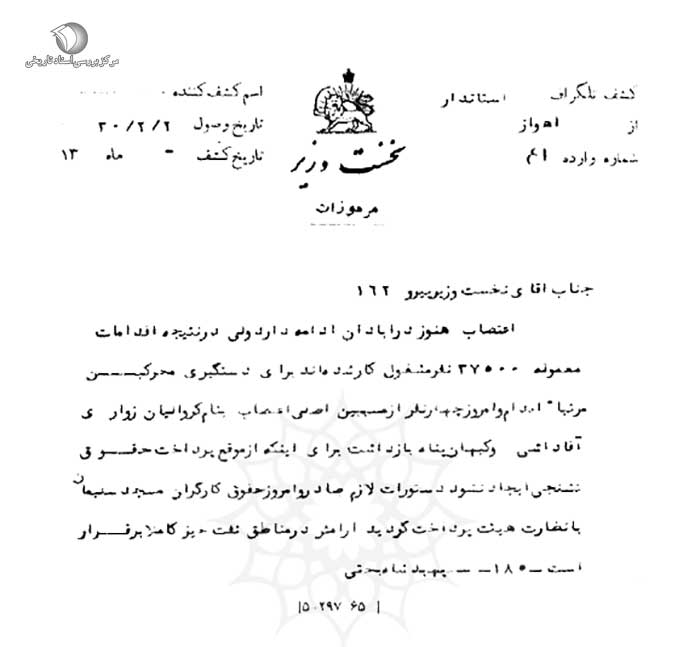 مرکز بررسی اسناد تاریخی
کشف تلگراف استاندار
از اهواز
شماره وارده
اسم کشف کننده
تاریخ وصول ۳۰/۲/۲
تاریخ کشف - ماه ۱۳
نخست وزیر
مرموزات
جناب اقای نخست وزیر پیرو ۱۶۲
اعتصاب هنوز درابادان ادامه دارد ولی درنتیجه اقدامات
معموله ۳۷۵۰۰ نفرمشغول کارشده‌اند برای دستگیری محرکیـــن
مرتبا" اقدام وامروزچهارنفر ازمسببین اصلی اعتصاب بنام کروانیان زواره ی
آقادائی وکیهان پناه بازداشت برای اینکه ازموقع پرداخت حقـــوق
تشنجی ایجاد نشود دستورات لازم صادروامروزحقوق کارگران مسجد سلیمان
بانظارت هیئت پرداخت گردید ارامش درمناطق نفت خیز کاملا برقـــرار
است ــ ۱۸۵ ــ سپهبد شاه‌بختی
۵۰۲۹۷ ۶۵